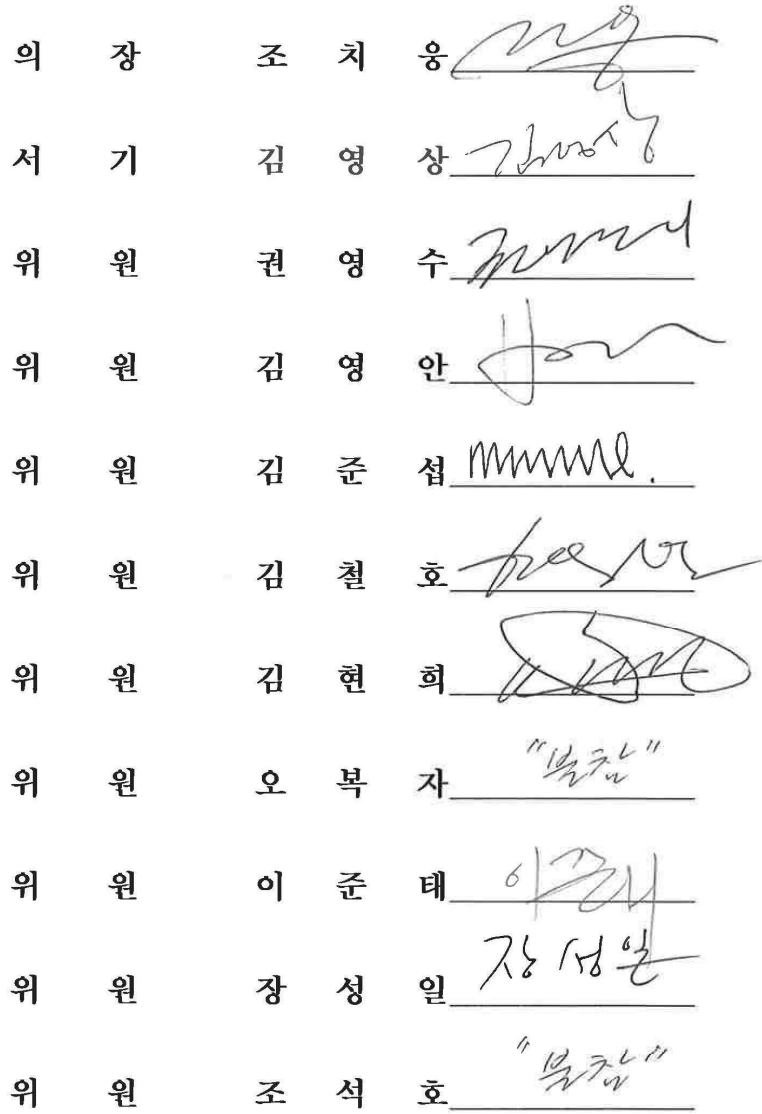 의 장 조 치 웅
서 기 김 영 상 김영상
위 원 권 영 수
위 원 김 영 안
위 원 김 준 섭
위 원 김 철 호
위 원 김 현 희
위 원 오 복 자 "불참"
위 원 이 준 태 이준태
위 원 장 성 일 장성일
위 원 조 석 호 "불참"